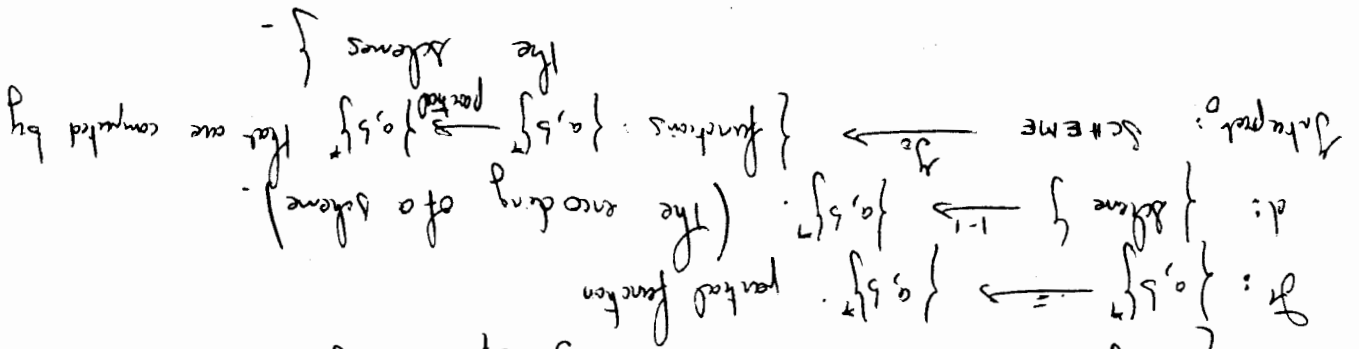 : {a,b}* → {a,b}*. partial function
d: {scheme} 1-1→ {a,b}*. (the encoding of a scheme).
Interpret₀: SCHEME → {functions: {a,b}* partial→ {a,b}* that are computed by
the schemes }.